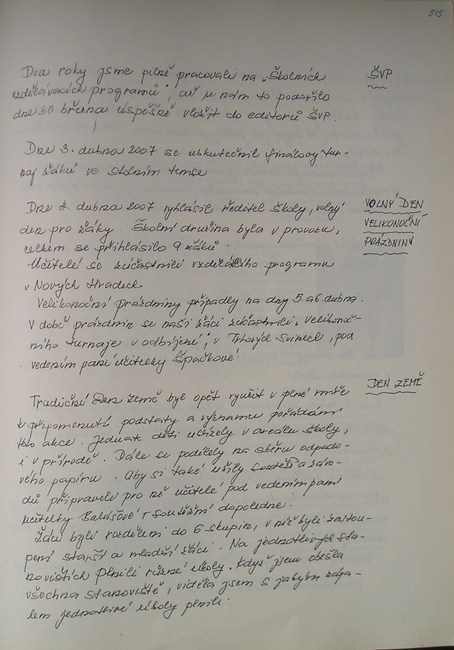 515
Dva roky jsme pilně pracovali na „Školních
vzdělávacích programů", až se nám to podařilo
dne 30. března úspěšně vložit do editorů ŠVP.
ŠVP
Dne 3. dubna 2007 se uskutečnil finálový tur-
naj žáků ve stolním tenise
Dne 4. dubna 2007 vyhlásil ředitel školy „volný
den pro žáky. Školní družina byla v provozu,
celkem se přihlásilo 9 žáků.
VOLNÝ DEN
VELIKONOČNÍ
PRÁZDNINY
Učitelé se zúčastnili vzdělávacího programu
v Nových Hradech.
Velikonoční prázdniny připadly na dny 5. a 6. dubna.
V době prázdnin se naši žáci zúčastnili „Velikonoč-
ního turnaje v odbíjené", v Trhových Svinech, pod
vedením paní učitelky Špačkové.
DEN ZEMĚ
Tradiční Den země byl opět využit v plné míře
k připomenutí podstaty a významu pořádání
této akce. Jednak děti uklízely v areálu školy,
i v přírodě. Dále se podílely na sběru odpado-
vého papíru. Aby si také užily soutěží a záro-
připravili pro ně učitelé pod vedením paní
učitelky soutěžní dopoledne.
Žáci byli rozděleni do 6 skupin, v níž byli zastou-
peni starší a mladší žáci. Na jednotlivých sta-
novištích plnili různé úkoly. Když jsem obešla
všechna stanoviště, viděla jsem s jakým zápa-
lem jednotlivé úkoly plnili.